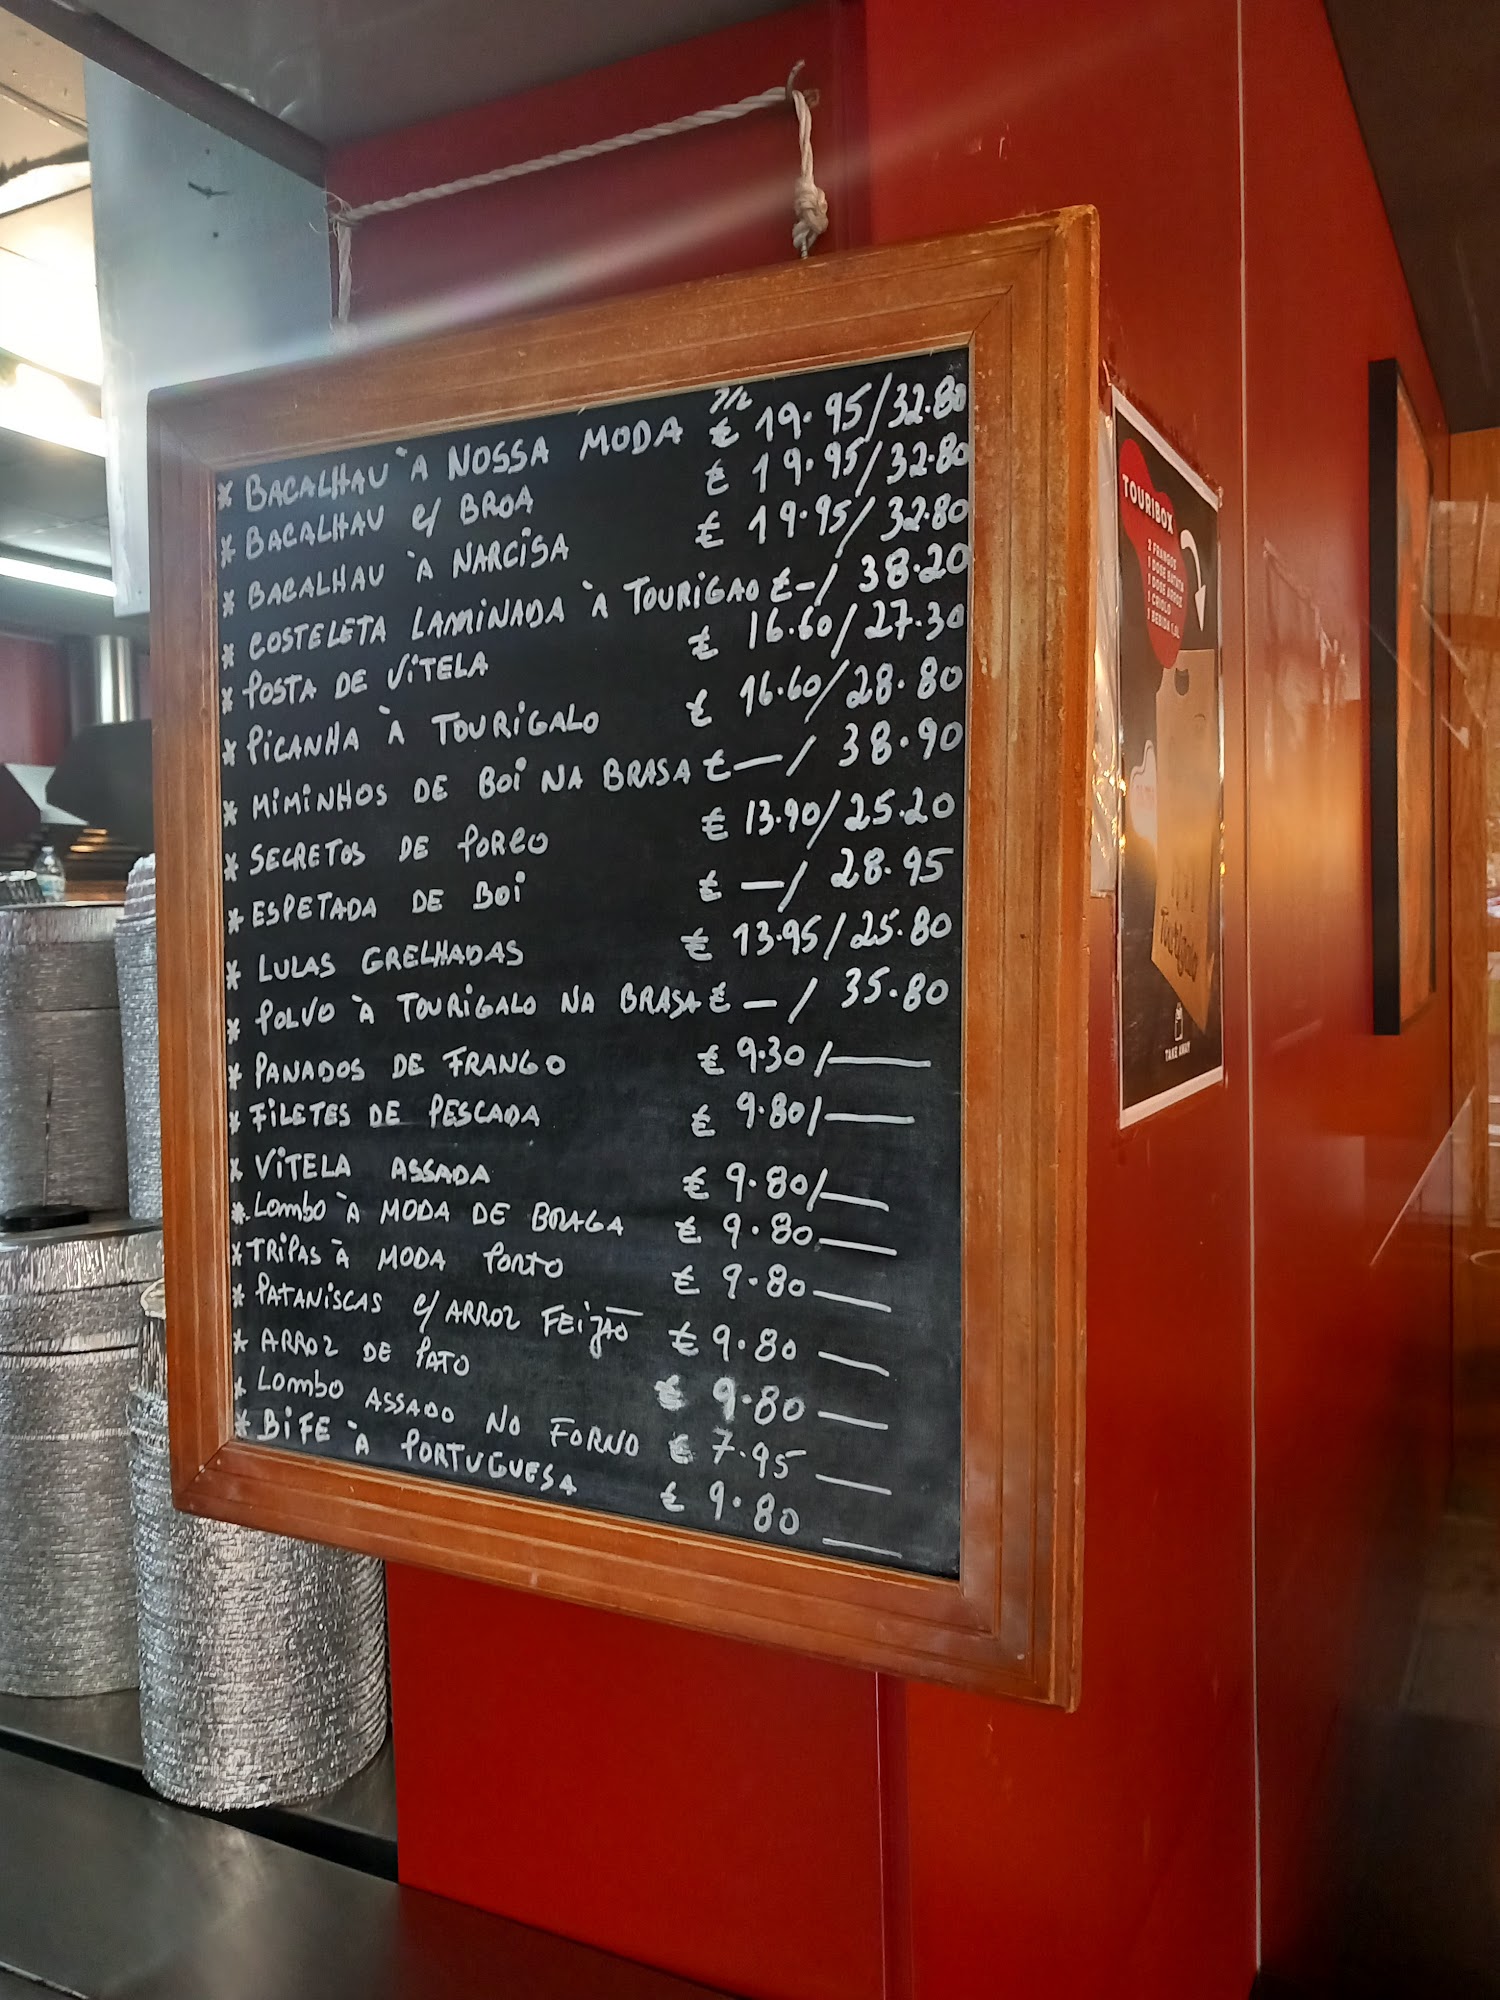 1/2
* BACALHAU À NOSSA MODA € 19.95/32.80
* BACALHAU C/ BROA € 19.95/32.80
* BACALHAU À NARCISA € 19.95/32.80
* COSTELETA LAMINADA À TOURIGAO €-/ 38.20
* POSTA DE VITELA € 16.60/27.30
* PICANHA À TOURIGALO € 16.60/28.80
* MIMINHOS DE BOI NA BRASA €—/ 38.90
* SECRETOS DE PORCO € 13.90/25.20
* ESPETADA DE BOI € —/ 28.95
* LULAS GRELHADAS € 13.95/25.80
* POLVO À TOURIGALO NA BRASA € —/ 35.80
* PANADOS DE FRANGO € 9.30/—
* FILETES DE PESCADA € 9.80/—
* VITELA ASSADA € 9.80/—
* LOMBO À MODA DE BRAGA € 9.80 —
* TRIPAS À MODA PORTO € 9.80 —
* PATANISCAS C/ ARROZ FEIJÃO € 9.80 —
* ARROZ DE PATO € 9.80 —
* LOMBO ASSADO NO FORNO € 7.95 —
* BIFE À PORTUGUESA € 9.80 —
TOURIBOX
2 FRANGOS
1 DOSE BATATA
1 DOSE ARROZ
1 CRIOLO
1 BEBIDA 1,5L
Tourigalo
TAKE AWAY